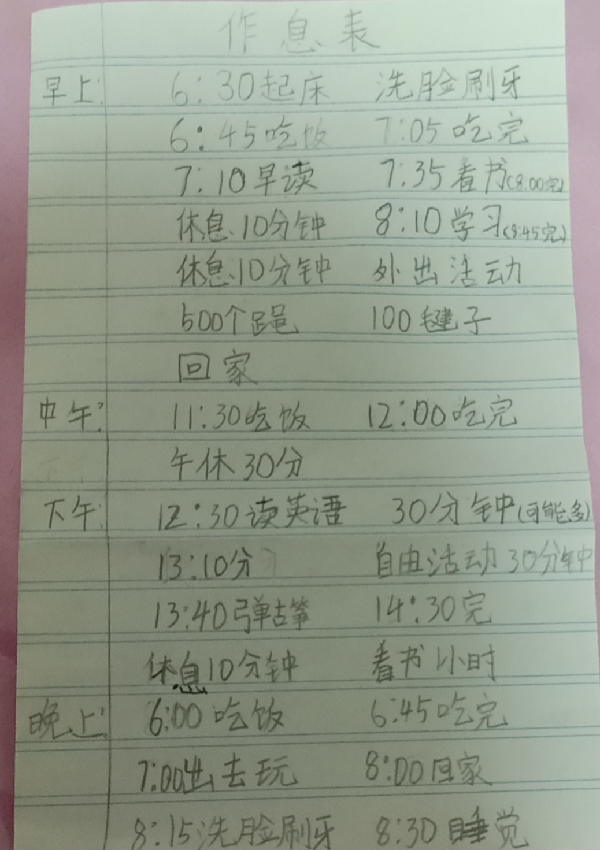 作息表
早上: 6:30起床 洗脸刷牙
6:45吃饭 7:05吃完
7:10早读 7:35看书(8:00完)
休息10分钟 8:10学习(8:45完)
休息10分钟 外出活动
500个跳绳 100毽子
回家
中午: 11:30吃饭 12:00吃完
午休30分
下午: 12:30读英语 30分钟(可能多)
13:10分 自由活动30分钟
13:40弹古筝 14:30完
休息10分钟 看书1小时
晚上: 6:00吃饭 6:45吃完
7:00出去玩 8:00回家
8:15洗脸刷牙 8:30睡觉